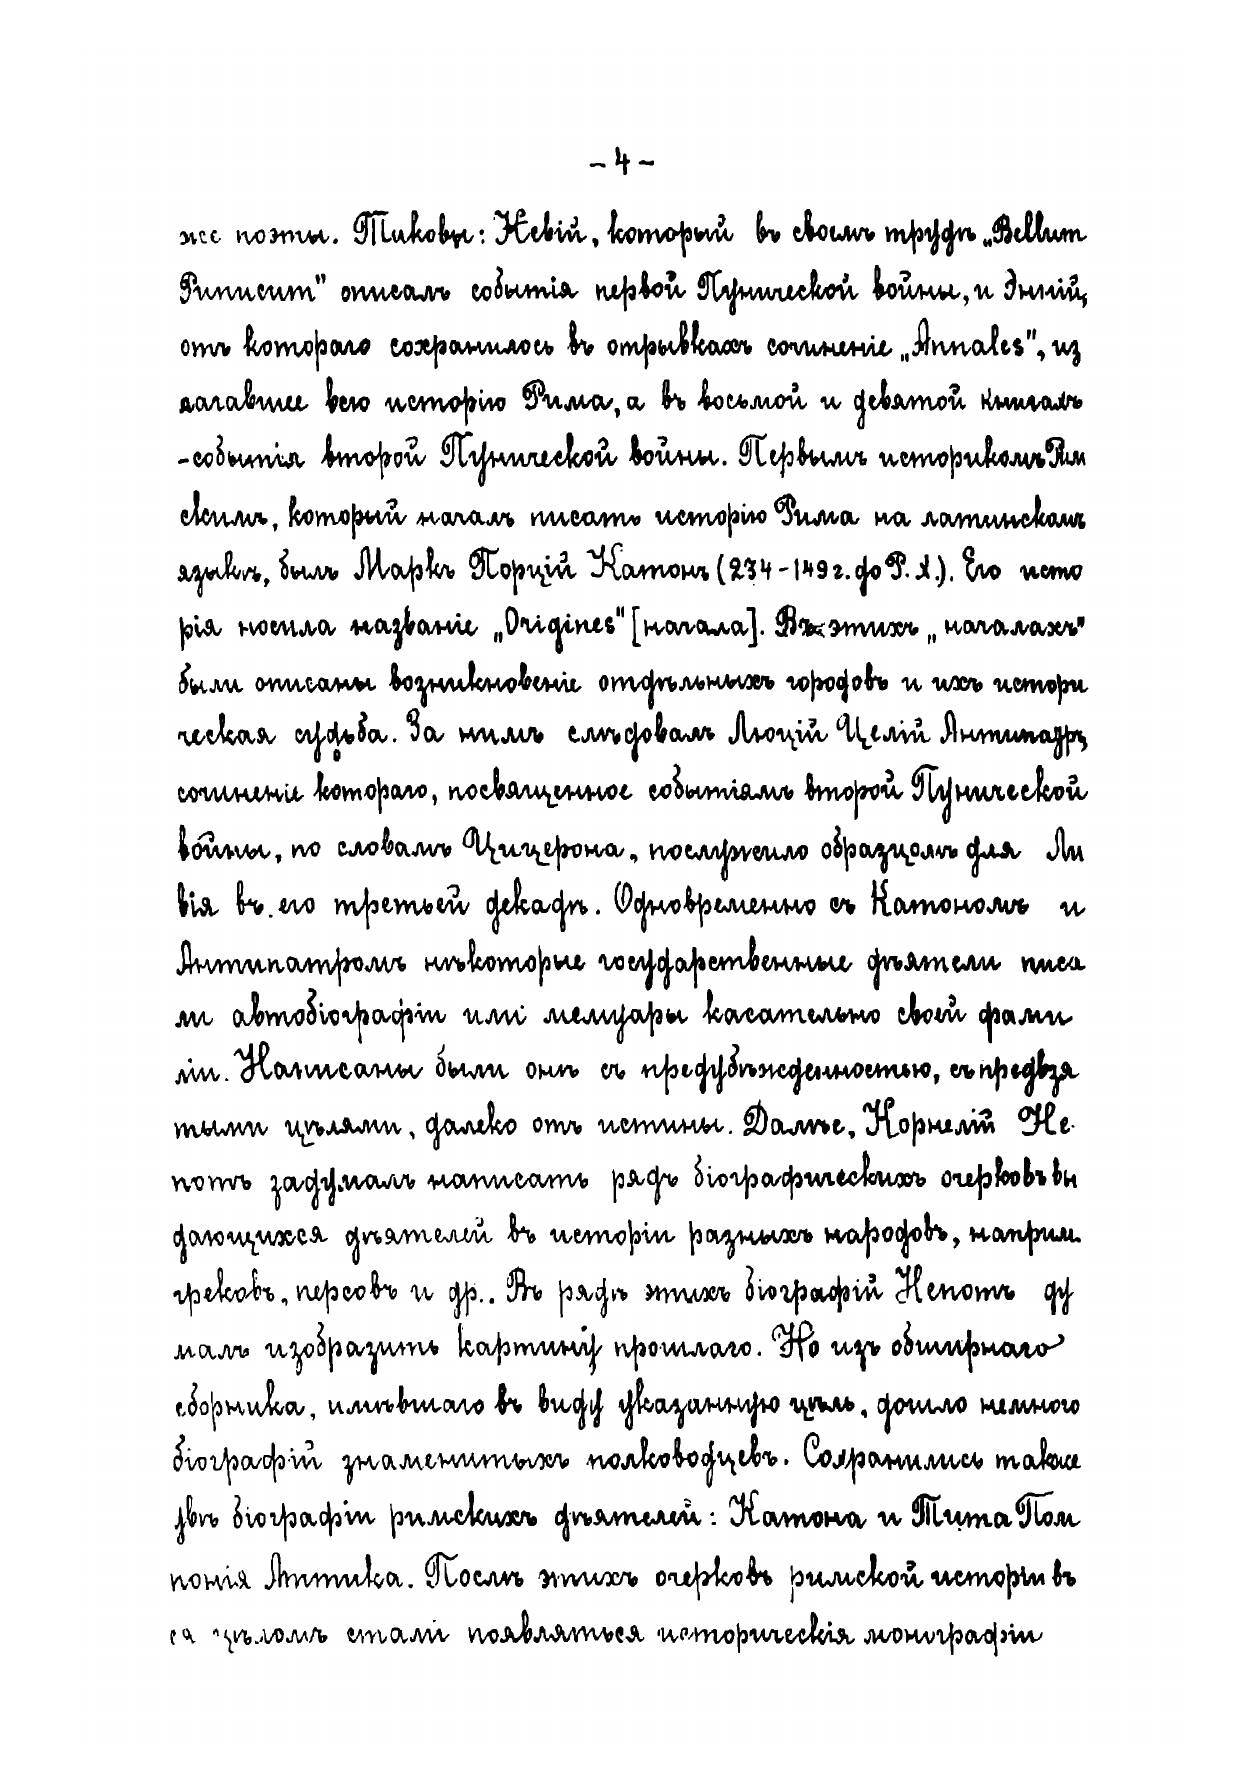 – 4 –
же поэты. Таковы: Невій, который въ своемъ трудѣ „Bellum
Punicum" описалъ событія первой Пунической войны, и Энній,
отъ котораго сохранилось въ отрывкахъ сочиненіе „Annales", из
лагавшее всю исторію Рима, а въ восьмой и девятой книгахъ
-событія второй Пунической войны. Первымъ историкомъ Рим
скимъ, который началъ писать исторію Рима на латинскомъ
языкѣ, былъ Маркъ Порцій Катонъ (234-149 г. до Р. Х.). Его исто
рія носила названіе „Origines" [начала]. Въ этихъ „началахъ"
были описаны возникновеніе отдѣльныхъ городовъ и ихъ истори
ческая судьба. За нимъ слѣдовалъ Люцій Целій Антипадръ,
сочиненіе котораго, посвященное событіямъ второй Пунической
войны, по словамъ Цицерона, послужило образцомъ для Ли
вія въ его третьей декадѣ. Одновременно съ Катономъ и
Антипатромъ нѣкоторые государственные дѣятели писа
ли автобіографіи или мемуары касательно своей фами
ліи. Написаны были онѣ съ предубѣжденностью, съ предвзя
тыми цѣлями, далеко отъ истины. Далѣе, Корнелій Не
потъ задумалъ написать рядъ біографическихъ очерковъ вы
дающихся дѣятелей въ исторіи разныхъ народовъ, наприм.
грековъ, персовъ и др.. Въ рядѣ этихъ біографій Непотъ ду
малъ изобразить картину прошлаго. Но изъ обширнаго
сборника, имѣвшаго въ виду указанную цѣль, дошло немного
біографій знаменитыхъ полководцевъ. Сохранились также
двѣ біографіи римскихъ дѣятелей: Катона и Тита Пом
понія Аттика. Послѣ этихъ очерковъ римской исторіи въ
ея цѣломъ стали появляться историческія монографіи